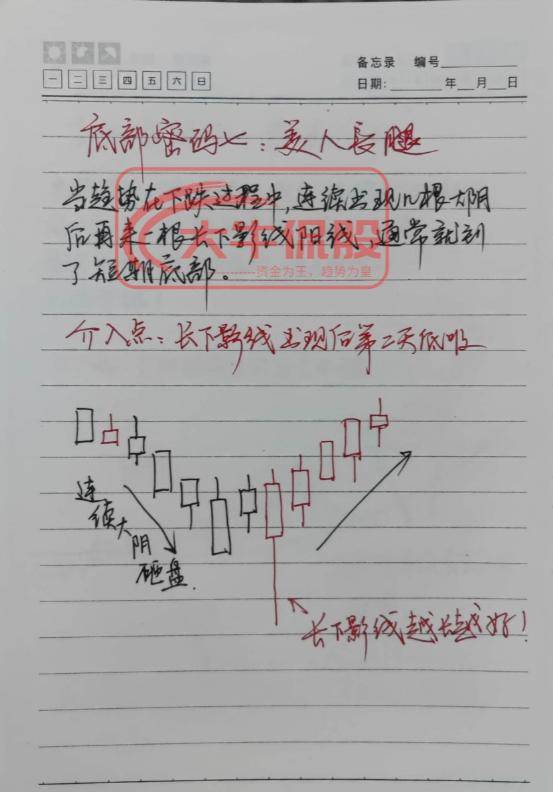 备忘录 编号
一 二 三 四 五 六 日
日期: 年 月 日
底部密码七：美人长腿
当趋势在下跌过程中，连续出现几根大阴
后再来一根长下影线阳线，通常就到
了短期底部。
大牛侃股
资金为王，趋势为皇
介入点：长下影线出现后第二天低吸
连续大阴
砸盘
长下影线越长越好！